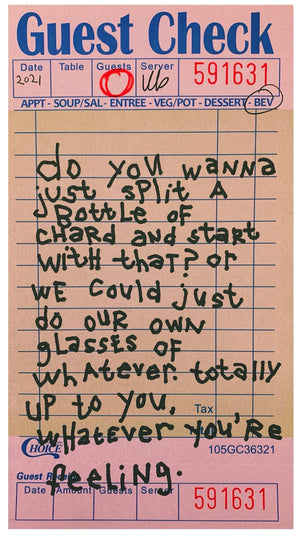 Guest Check
Date Table Guests Server
2021 591631
APPT - SOUP/SAL - ENTREE - VEG/POT - DESSERT - BEV
do you wanna
just split A
Bottle of
chard and start
with that? or
we could just
do our own
glasses of
whatever. totally
up to you,
Tax
whatever you're
CHOICE 105GC36321
feeling.
Guest Receipt
Date Amount Guests Server 591631